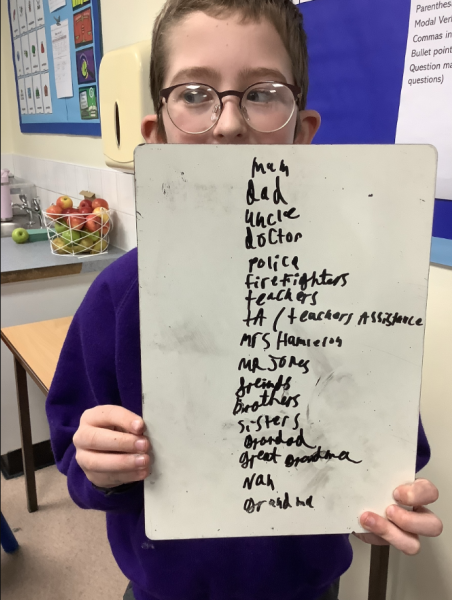 Parenthes
Modal Ver
Commas in
Bullet point
Question ma
questions)
mum
dad
uncle
doctor
police
firefighters
teachers
TA / teachers Assistance
MRS Hamleton
MR JONES
freinds
Brothers
sisters
Grandad
great Grandma
Nan
Grandma